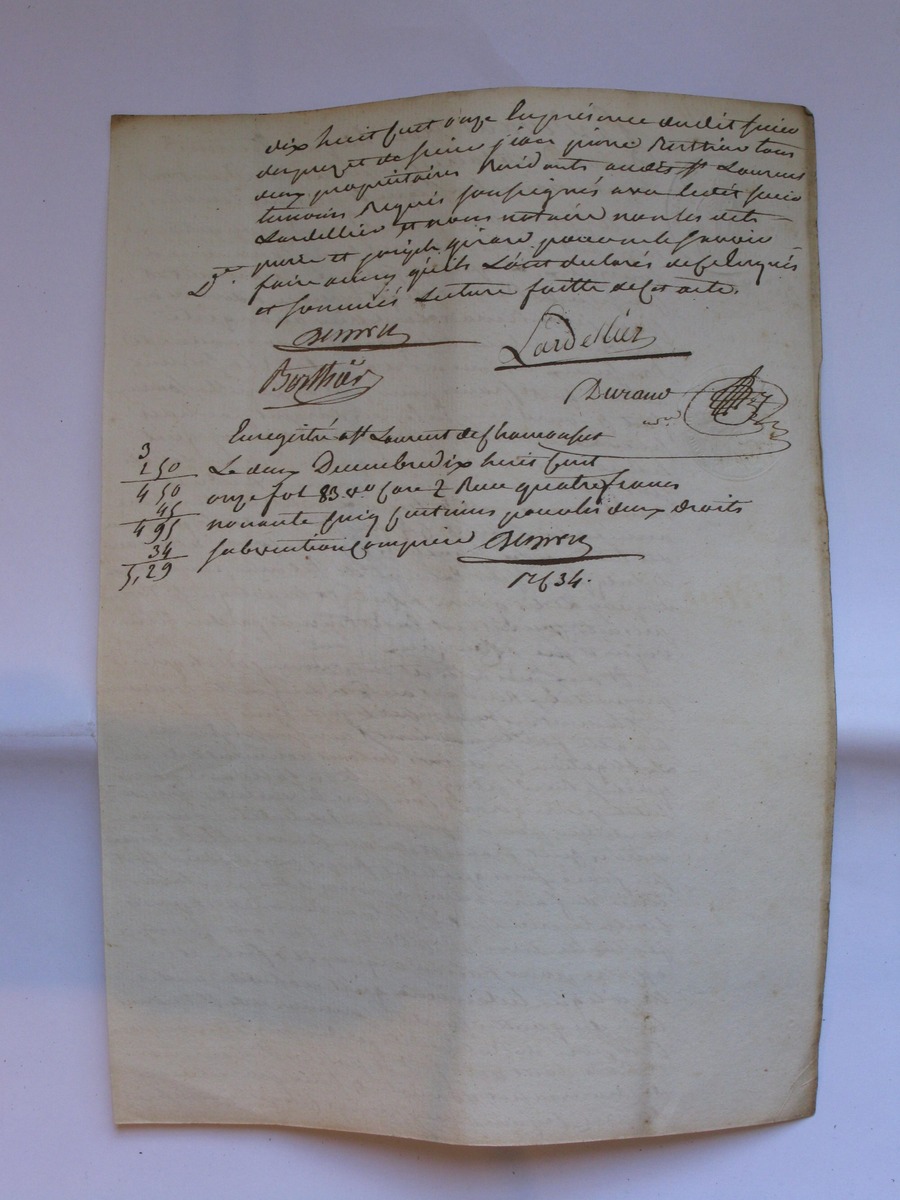 dix huit cent onze en présence dudit sieur
et de sieur jean pierre Berthier tous
deux propriétaires Residants audit St Laurent
temoins Requis soussignés avec ledit sieur
Lardellier et nous notaire non les dits
pierre et joseph girard pour ne le Savoir
faire ainsy qu'ils L'ont declarés de ce Enquis
et sommés Lecture faitte de cet acte.
Lardellier
Berthier
Durand
Enregistré a St Laurent de Chamousset
Le deux Decembre dix huit cent
onze fol 83 vo Case 2 Reçu quatre francs
nonante cinq centimes pour les deux droits
subvention Comprise
3
1 50
4 50
45
4 95
34
5,29
34.